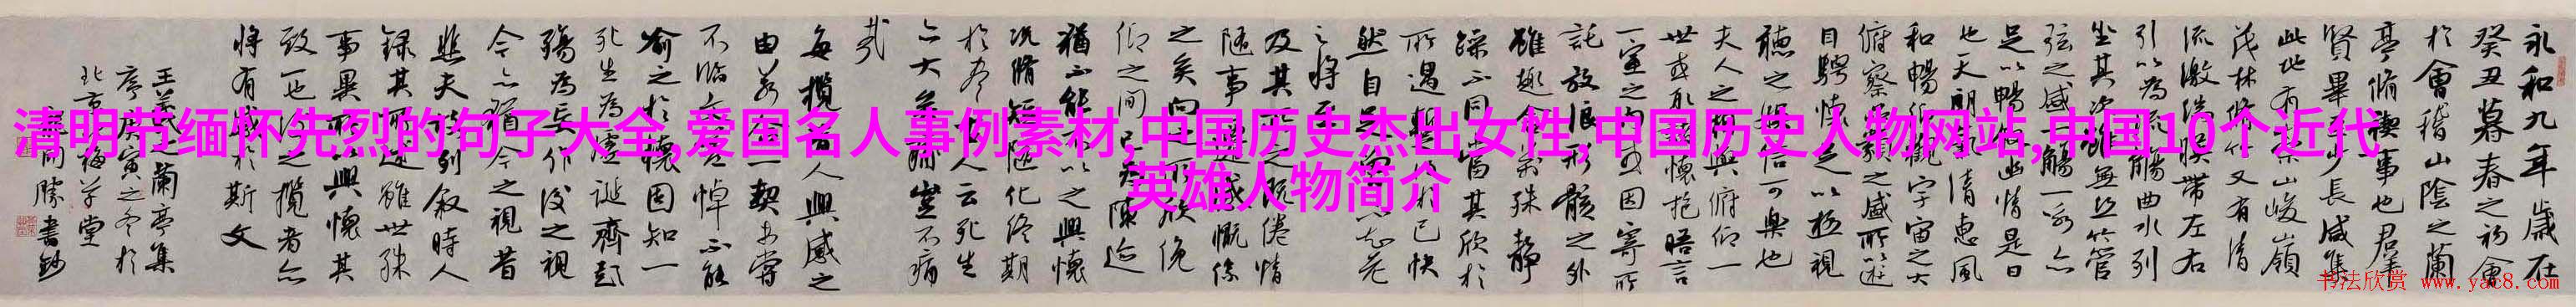 清明节缅怀先烈的句子大全,爱国名人事例素材,中国历史杰出女性,中国历史人物网站,中国10个近代
英雄人物简介
永和九年歲在
癸丑暮春之初會
於會稽山陰之蘭
亭脩禊事也群
賢畢至少長咸集
此地有崇山峻嶺
茂林脩竹又有清
流激湍暎帶左右
引以為流觴曲水列
坐其次雖無絲竹管
弦之盛一觴一詠亦
足以暢敘幽情是日
也天朗氣清惠風
和暢仰觀宇宙之大
俯察品類之盛所以遊
目騁懷足以極視
聽之娛信可樂也
夫人之相與俯仰一
世或取諸懷抱晤言
一室之內或因寄所
託放浪形骸之外
雖趣舍萬殊靜
躁不同當其欣於
所遇暫得於己快
然自足不知老
之將至
及其所之既倦情
隨事遷感慨係
之矣向之所欣俛
仰之間已為陳迹
猶不能不以之興懷
況脩短隨化終期
於盡古人云死生
亦大矣豈不痛
哉
每攬昔人興感之
由若合一契未嘗
不臨文嗟悼不能
喻之於懷固知一
死生為虛誕齊彭
殤為妄作後之視
今亦猶今之視昔
悲夫故列敘時人
錄其所述雖世殊
事異所以興懷其
致一也後之攬者亦
將有感於斯文
王羲之蘭亭集
序庚寅之冬於
北京梅草堂
同勝書鈔
书法欣赏 www.yac8.com